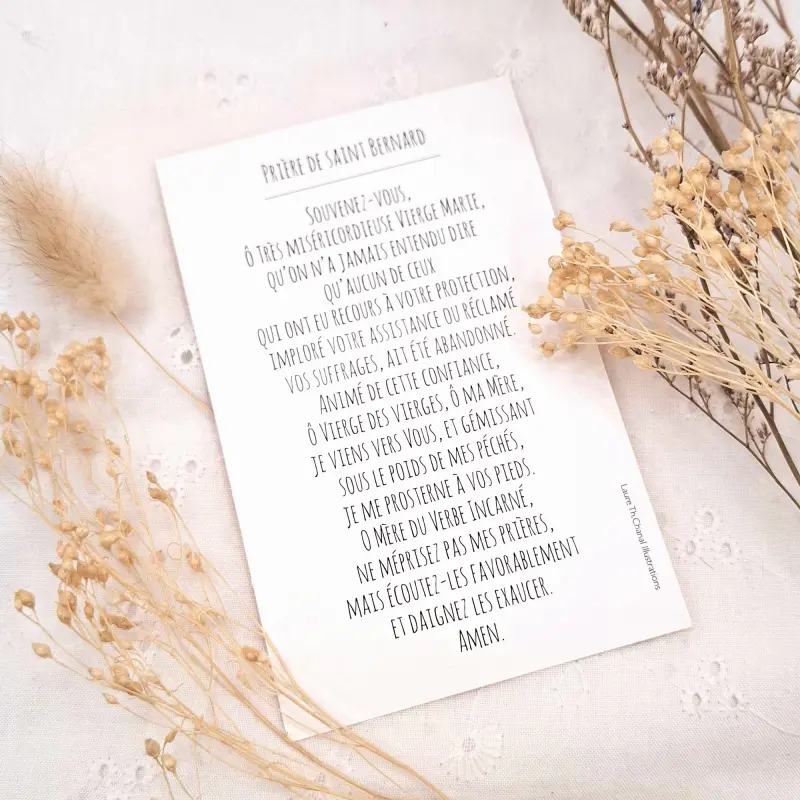 Prière de saint Bernard
Souvenez-vous,
Ô très miséricordieuse Vierge Marie,
qu'on n'a jamais entendu dire
qu'aucun de ceux
qui ont eu recours à votre protection,
imploré votre assistance ou réclamé
vos suffrages, ait été abandonné.
Animé de cette confiance,
Ô Vierge des vierges, Ô ma Mère,
je viens vers Vous, et gémissant
sous le poids de mes péchés,
je me prosterne à vos pieds.
O Mère du Verbe Incarné,
ne méprisez pas mes prières,
mais écoutez-les favorablement
et daignez les exaucer.
Amen.
Laure Th.Chanal Illustrations